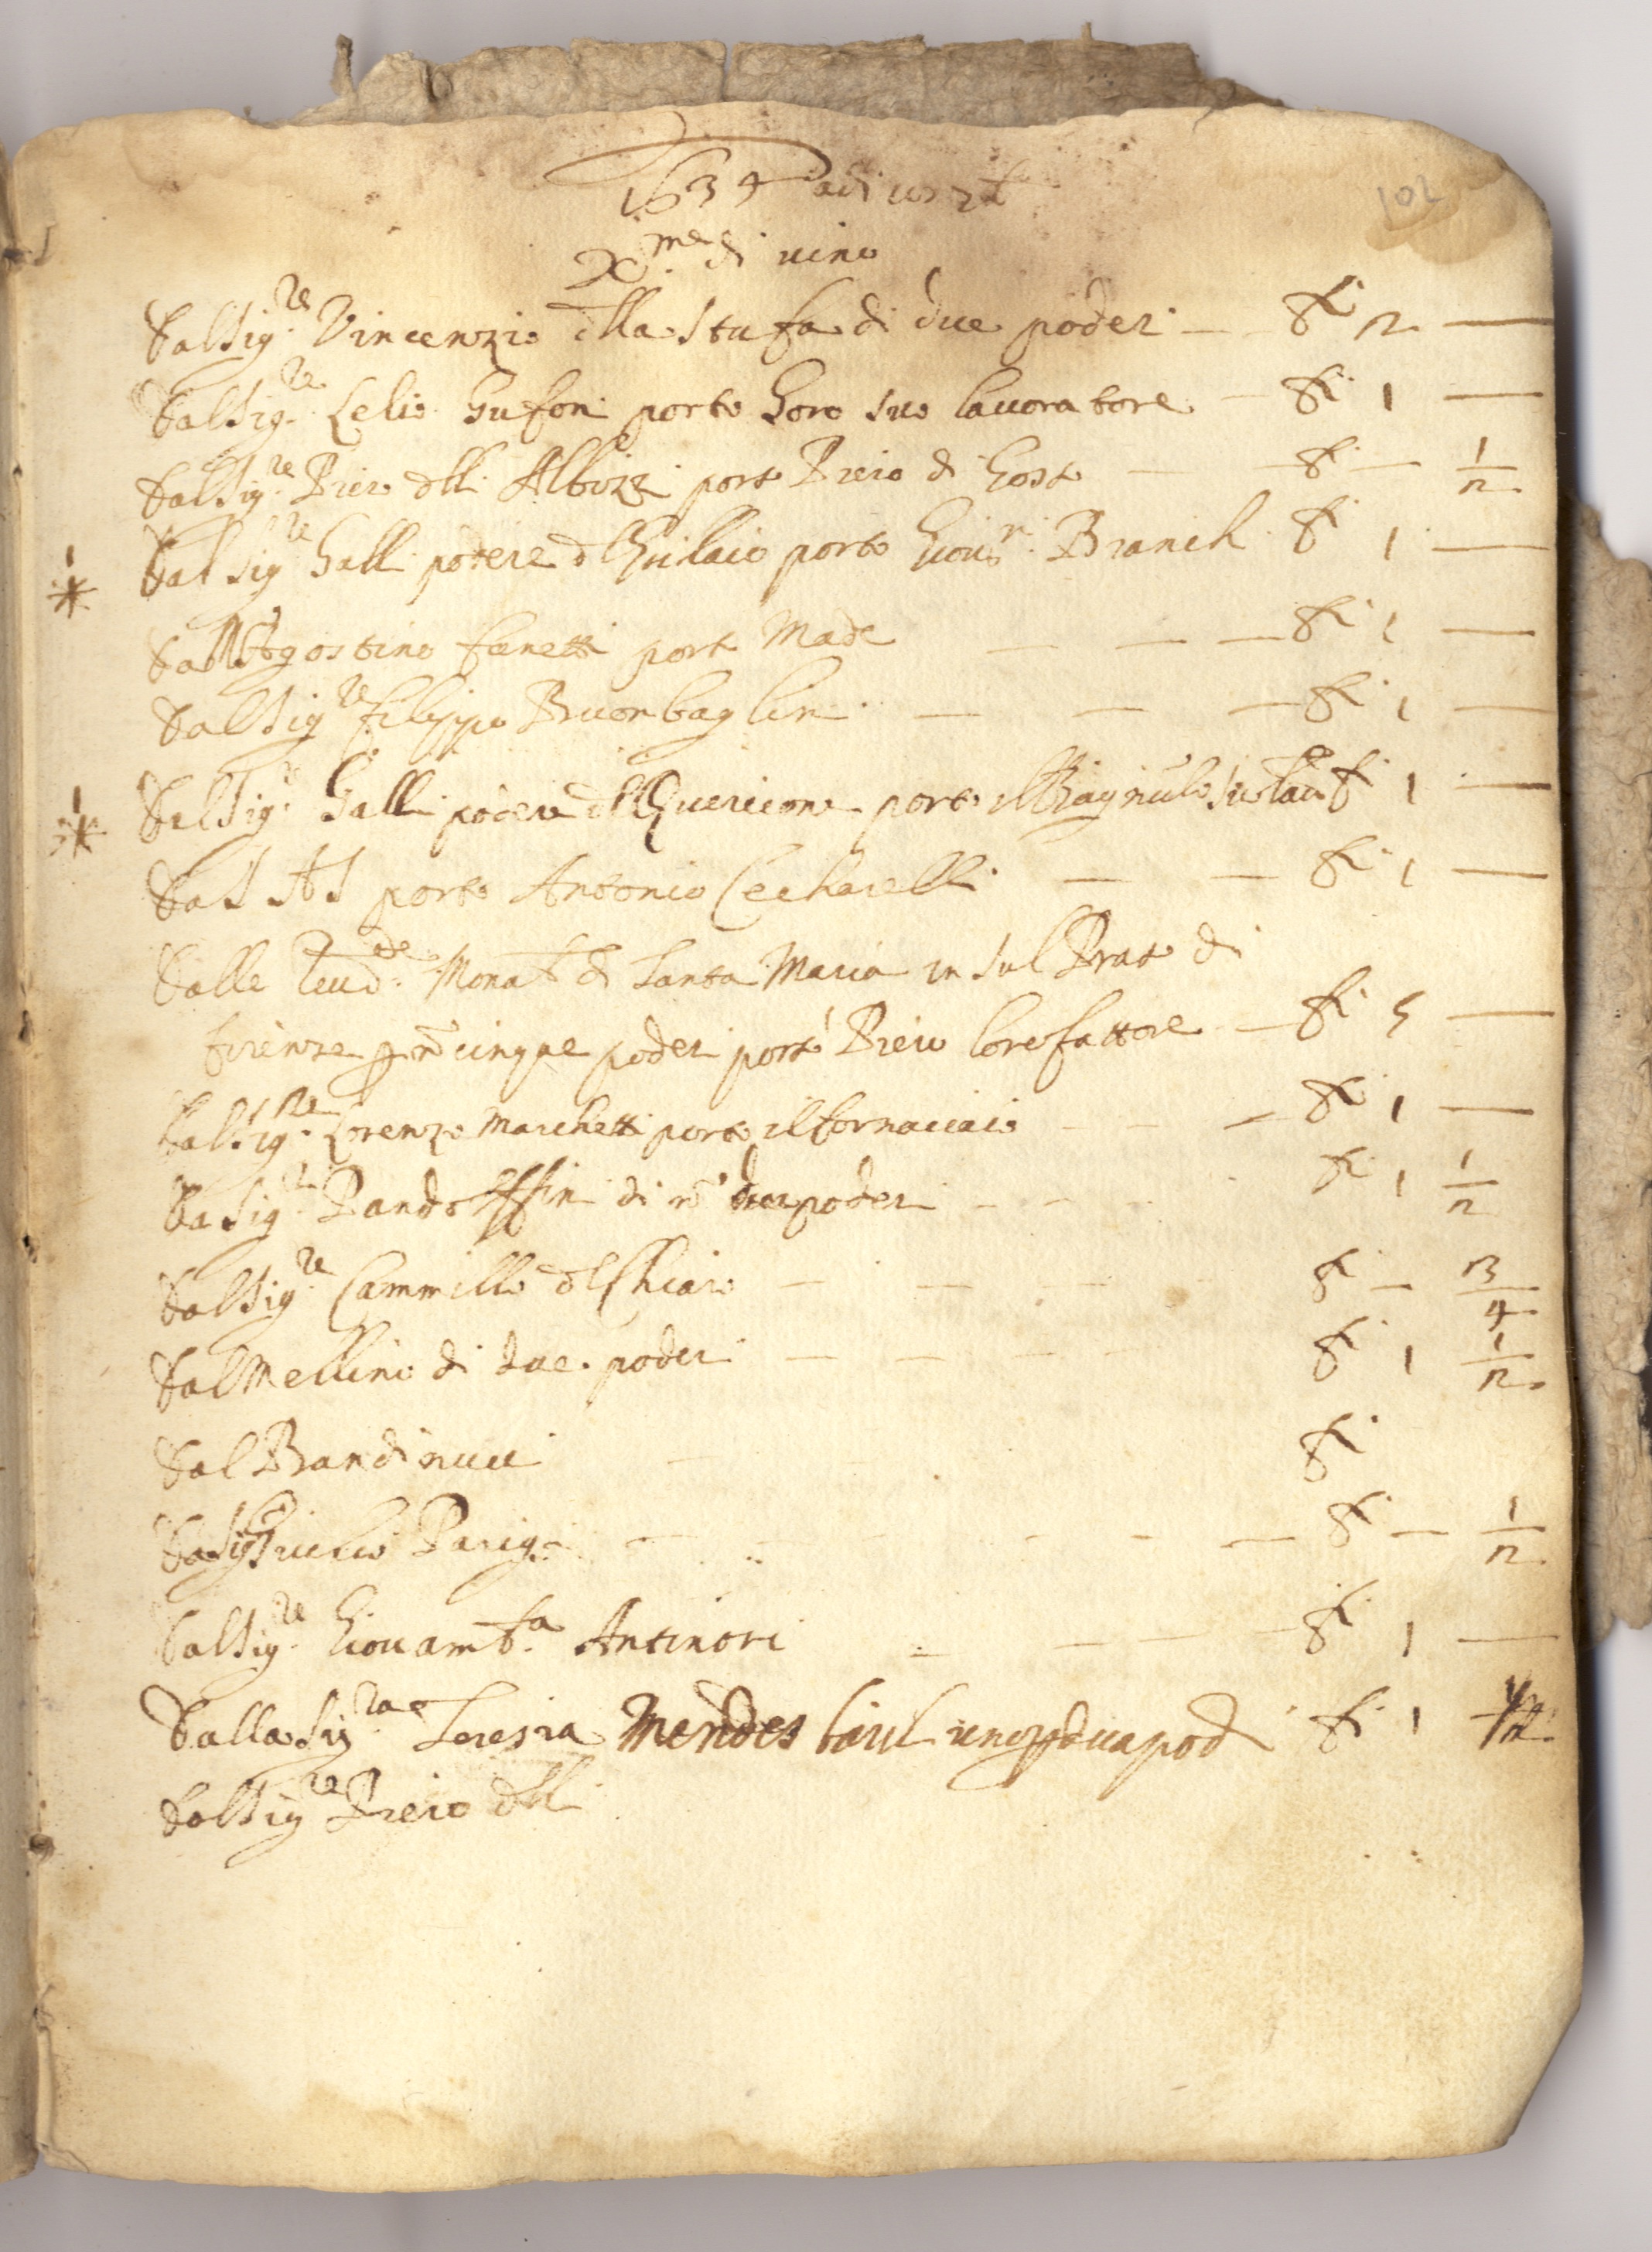 102
1634 adi
Xme di vino
Dal Sigre Vincenzio della Stufa di due poderi — Bi 2 —
Dal Sigre Lelio Gufoni porto Goro suo lavoratore — Bi 1 —
Dal Sigre Piero delli Albizzi porto Piero di — Bi — 1/2
Dal Sigre Galli podere del porto Branch Bi 1 —
Dal Agostino fanetti porto — — Bi 1 —
Dal Sigre filippo Buontaglini — — — Bi 1 —
Dal Sigre Galli podere del Quercione porto il suo Bi 1 —
Dal S A S porto Antonio Cecharelli — — Bi 1 —
Dalle Revde Monache di Santa Maria in sul Prato di
firenze cinque poderi portò Piero loro fattore — Bi 5 —
Dal Sigre Lorenzo Marchetti porto il fornaciaio — Bi 1 —
Da Sigri Pandolffini di no due poderi — — Bi 1 1/2
Dal Sigre Cammillo del Chiaro — — — Bi — 3/4
Dal Mellini di due poderi — — — Bi 1 1/2
Dal Bandinucci — Bi
Da Sigre Parigi — — — Bi — 1/2
Dal Sigre Giovambta Antinori — — — Bi 1 —
Dalla Sigra Teresia Mendes baril uno dua pod Bi 1
Dal Sigre Piero delli